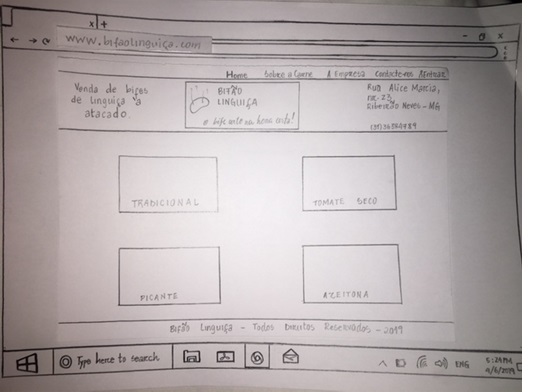 x +
www.bifaolinguiça.com
Home Sobre a Carne A Empresa Contacte-nos
Venda de bifes
de linguiça
atacado.
BIFÃO
LINGUIÇA
o bife
Rua Alice Marcia,
Ribeirão Neves - MG
TRADICIONAL
TOMATE SECO
PICANTE
AZEITONA
Bifão Linguiça - Todos Direitos Reservados - 2019
Type here to search
ENG